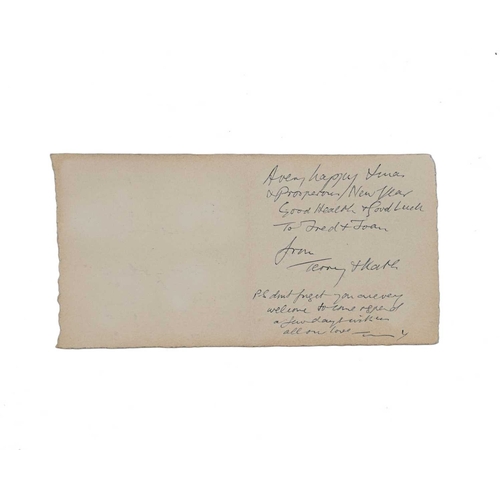 A very happy Xmas
& Prosperous New Year
Good Health & Good Luck
To Fred & Joan
from
Terry & Kath
P.S. dont forget you are very
welcome to come & spend
a few days with us
all our love